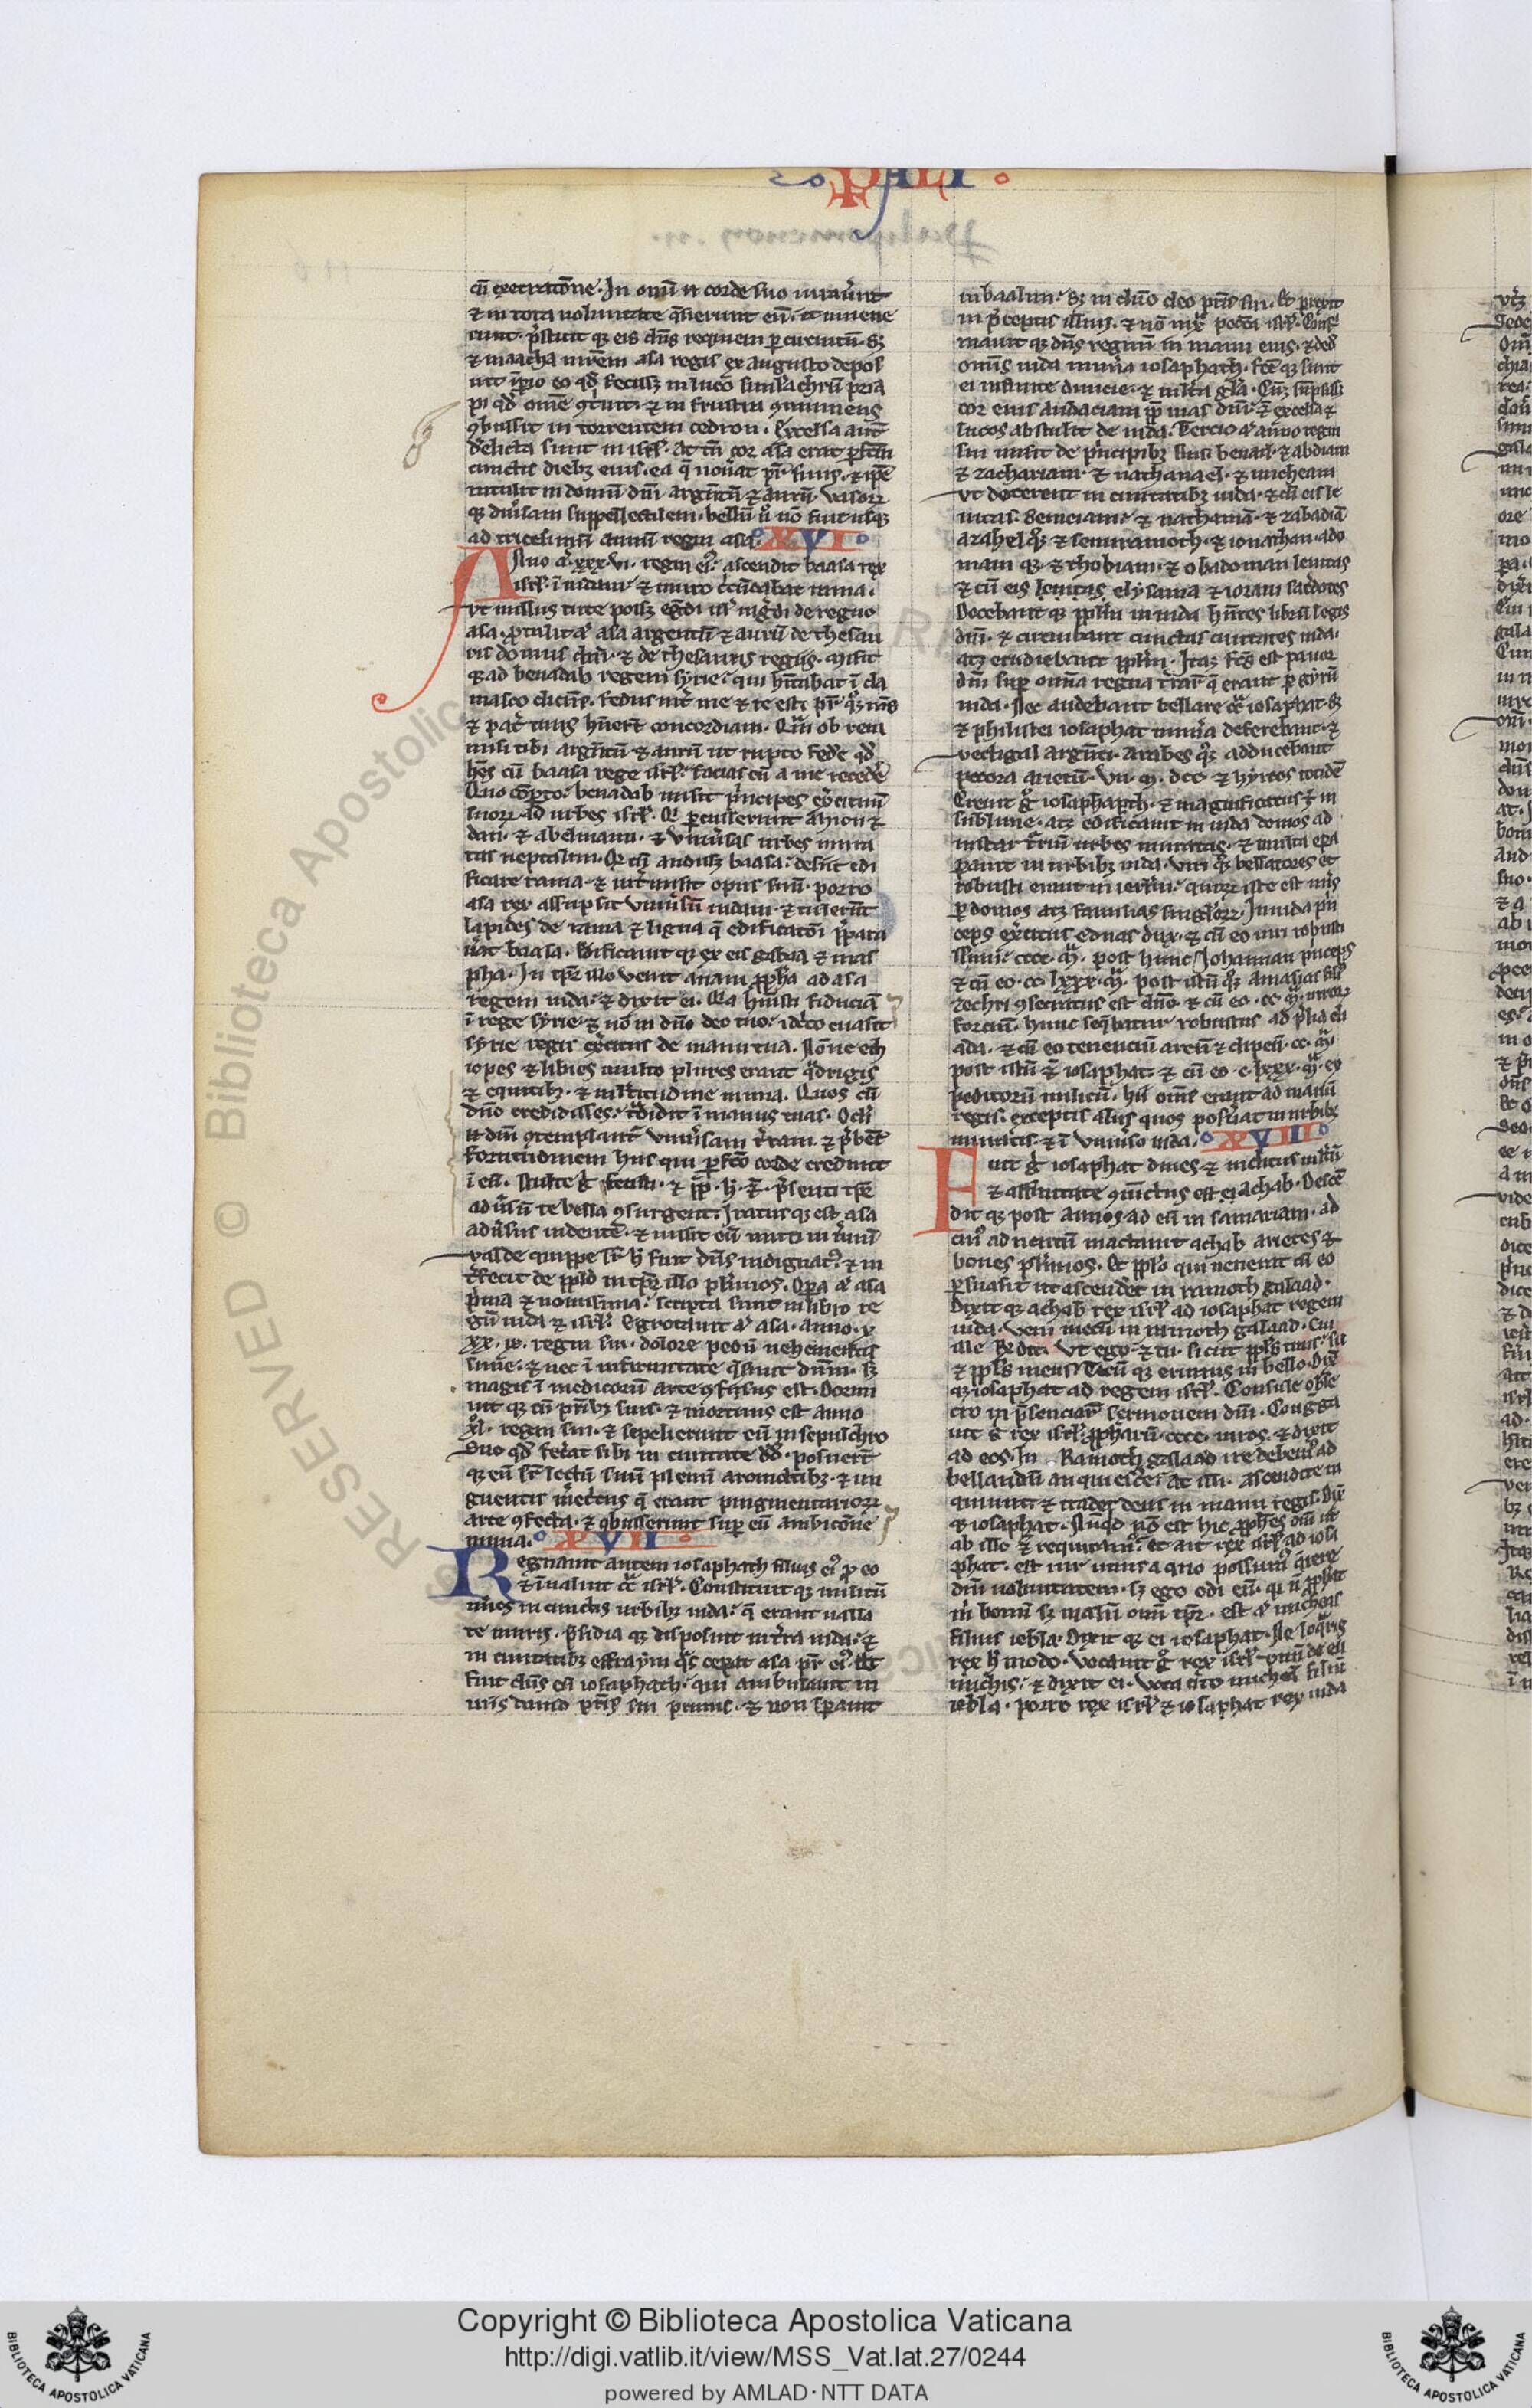 PALI
cū execratōne. In omī n̄ corde suo iurauer̄t
⁊ in tota uoluntate q̄sierunt eū. ⁊ inuene
runt. p̄stitit q; eis dn̄s requiem ꝑ circuitū. Sꝫ
⁊ maacha mr̄em asa regis ex augusto depos
uit ꝑio eo qd̄ fecissꝫ in luco simlachrū pria
pi qd̄ om̄e ꝯtriuit. ⁊ in frustra ꝯminuens
ꝯbussit in torrentem cedron. Excelsa aut̄
derelicta sunt in isrl̄. at tn̄ cor asa erat ꝑfctm̄
cunctis diebꝫ eius. ea q̄ nouat pr̄ suus. ⁊ ip̄e
intulit in domū dnī argn̄tū ⁊ aurū. Vasoꝝ
qꝫ diūsam suppellectilem. bellū ū nō fuit usqꝫ
ad tricesimū annū regni asa. XVI
Anno aͥ. xxx. vi. regni eiꝰ. ascendit baasa rex
isrl̄. ī iudam. ⁊ muro circūdabat rama.
vt nullus tute possꝫ egredi ul̄ ingredi de regno
asa. ꝓtulit aͥ asa argentū ⁊ aurū de thesau
ris domus dnī. ⁊ de thesauris regis. misit
q; ad benadab regem syrie. qui hitabat ī da
masco dicens. Fedus int̄ me ⁊ te est. pr̄ qꝫ ms̄
⁊ patr̄ tuus hūert̄ concordiam. Qm̄ ob rem
misi tibi argn̄tū ⁊ aurū ut rupto fedē qd̄
hēs cū baasa rege isrl̄. facias eū a me recedē
Quo comꝑto. benadab misit p̄ncipes exercituū
suoꝝ. ad urbes isrl̄. Qi ꝑcusserunt ahion ⁊
dan. ⁊ abelmaim. ⁊ vniūsas urbes mura
tas neptalim. Qd̄ cū audissꝫ baasa. desiit edi
ficare rama. ⁊ int̄misit opus suū. porro
asa rex assūpsit vniūsū iudam. ⁊ tulerūt
lapides de rama ⁊ ligna q̄ edificatōi p̄para
ūat baasa. Edificauit qꝫ ex eis gabaa ⁊ mas
pha. In tp̄e illo venit anani ꝓph̄a ad asa
regem iuda. ⁊ dixit ei. Q̄a huisti fiduciā
ī rege syrie. ⁊ nō in dn̄o deo tuo. idcirco euasit
syrie regis exercitus de manu tua. Nōne eth
iopes ⁊ libies multo plures erant q̄drigis
⁊ equitibꝫ. ⁊ multitudine nimia. Quos cū
dn̄o credidisses. tradidit ī manus tuas. Ocli
n̄ dnī ꝯtemplant̄ vniūsam tr̄ram. ⁊ p̄bēt
fortitudinem hiis qui ꝑfcō corde credunt
ī eū. stulte ġ fecisti. ⁊ ꝓp̄. h̄. ⁊. p̄senti tp̄e
aduersū te bella ꝯsurgent. Iratus qꝫ est asa
adūsus uidentē. ⁊ misit eū mitti in neruū
valde quippe sr̄ h̄ fuit dn̄s indignatꝰ. ⁊ in
t̄fecit de pplō in tp̄r illo plimos. Opera aͥ asa
p̄ma ⁊ nouissima. scripta sunt in libro re
gū iuda ⁊ isrl̄. Egrotauit aͥ asa. anno. x
xx. ix. regni sui. dolore pedū uehementis
sime. ⁊ nec ī infirmitate q̄siuit dn̄m. sꝫ
magis ī medicorū arte ꝯfisus est. Dormi
uit qꝫ cū pribꝫ suis. ⁊ mortuus est anno
xl. regni sui. ⁊ sepelierunt eū in sepulchro
suo qd̄ fecat sibi in ciuitate dd̄. posuert̄
qꝫ eū sr̄ lectū suū plenū aromatibꝫ. ⁊ un
guentis meretciis q̄ erant pingmentarioꝝ
arte ꝯfecta. ⁊ ꝯbusserunt suꝑ eū ambitōne
nimia. XVII
Regnauit autem iosaphath filius eiꝰ ꝓ eo
⁊ īualuit cōt isrl̄. Constituit qꝫ militū
nūos in cunctis urbibꝫ iuda. q̄ erant ualla
te muris. p̄sidia qꝫ disposuit in tr̄ra iuda. ⁊
in ciuitatibꝫ effraym q̄s cepat asa pr̄ eiꝰ. Et
fuit dn̄s cū iosaphath. qui ambulauit in
uiis dauid pr̄is sui primis. ⁊ non sperauit
in baalim. sꝫ in dn̄o deo pr̄is sui. Et prexit
in p̄ceptis illius. ⁊ nō iuxͣ pecc̄a isrl̄. Confir
mauit qꝫ dn̄s regnū in manu eius. ⁊ ded̄
omīs iuda munͣa iosaphath. fcē qꝫ sunt
ei infinite diuicie. ⁊ multa gl̄a. Cūqꝫ sūpsissꝫ
cor eius audaciam ꝓp̄ uias dnī. ⁊ excelsa ⁊
lucos abstulit de iuda. Tercio aͥ anno regni
sui misit de p̄ncipibꝫ suis benail. ⁊ abdiam
⁊ zachariam. ⁊ nathanael. ⁊ micheam
vt docerent in ciuitatibꝫ iuda. ⁊ cū eis le
uitas. semeiam. ⁊ nathaniā. ⁊ zabadiā
azahel qꝫ ⁊ semiramoth. ⁊ ionathan. ado
niam qꝫ. ⁊ thobiam. ⁊ obadonian leuitas
⁊ cū eis leuitas elysama ⁊ ioram sacerdotes
Docebant qꝫ pplm̄ in iuda hn̄tes librū legis
dnī. ⁊ circuibant cunctas ciuitates iuda.
atꝫ erudiebant pplm̄. Itaꝫ fcs̄ est pauor
dnī suꝑ omīa regna tr̄rar̄ q̄ erant ꝑ gyrū
iuda. Nec audebant bellare cōt iosaphat. Sꝫ
⁊ philistei iosaphat munͣa deferebant. ⁊
vectigal argn̄ti. Arabes qꝫ adducebant
pecora arietū. vii. m̄. dcc. ⁊ hyrcos totidē
Creuit ġ iosaphapth. ⁊ magnificatus ē in
sublime. atꝫ edificauit in iuda domos ad
instar turriū urbes muratas. ⁊ multa opa
ꝑauit in urbibꝫ iuda. Viri qꝫ bellatores et
robusti erant in iertlm̄. quoꝝ iste est nūs
ꝑ domos atꝫ familias singloꝝ. In iuda p̄n
ceps exercitus ednas dux. ⁊ cū eo uiri robusti
ssimi. ccc. m̄. post hunc Iohannan princeps
⁊ cū eo. cc. lxxx. m̄. post istū qꝫ amasias fili
zechri ꝯsecratus est dn̄o. ⁊ cū eo. cc. m̄. uiroꝝ
fortiū. hunc seq̄batur robustus ad p̄lia eli
ada. ⁊ cū eo tenenciū arcū ⁊ clipeū. cc. m̄.
post istū ⁊ iosaphat. ⁊ cū eo. c. lxxx. m̄. ex
peditorū militū. hii om̄s erant ad manū
regis. exceptis aliis quos posūat in urbibꝫ
muratis. ⁊ ī vniūso iuda. XVIII
Fuit ġ iosaphat diues. ⁊ inclitus multū
⁊ affinitate ꝯiunctus est ei achab. Descē
dit qꝫ post annos ad eū in samariam. ad
cuiꝰ aduentū mactauit achab arietes ⁊
boues plimos. Et pplō qui uenerat cū eo
ꝑsuasit ut ascenderet in ramoth galaad.
Dixit qꝫ achab rex isrl̄ ad iosaphat regem
iuda. veni mecū in ramoth galaad. Cui
ille R̄dit. Vt ego. ⁊ tu. sicut ppls̄ tuus. sic
⁊ ppls̄ meus. Tecū qꝫ erimus in bello. Dixit
qꝫ iosaphat ad regem isrl̄. Consule obse
cro in p̄senciar̄ sermonem dnī. Congga
uit ġ rex isrl̄. ꝓphar̄ū. cccc. uiros. ⁊ dixit
ad eos. In Ramoth galaad ire debemꝰ ad
bellandū an quiescē. at illi. ascendite in
quiunt. ⁊ tradet deus in manu regis. Dix̄
qꝫ iosaphat. Nūqd nō est hic ꝓphes dnī ut
ab illo ⁊ requiramꝰ. Et ait rex isrl̄ ad iosa
phat. est uir unus a quo possumꝰ q̄rere
dnī uoluntatem. sꝫ ego odi eū. qi n̄ ꝓphat
m̄ bonū sꝫ malū omī tp̄r. est aͥ micheas
filius iebla. Dixit qꝫ ei iosaphat. Ne loq̄ris
rex h̄ modo. vocauit ġ rex isrl̄ vnū de eu
nuchis. ⁊ dixit ei. Voca cito micheā filiū
iebla. porro rex isrl̄ ⁊ iosaphat rex iuda
RESERVED © Biblioteca Apostolica
Copyright © Biblioteca Apostolica Vaticana
http://digi.vatlib.it/view/MSS_Vat.lat.27/0244
powered by AMLAD·NTT DATA
BIBLIOTECA APOSTOLICA VATICANA
BIBLIOTECA APOSTOLICA VATICANA